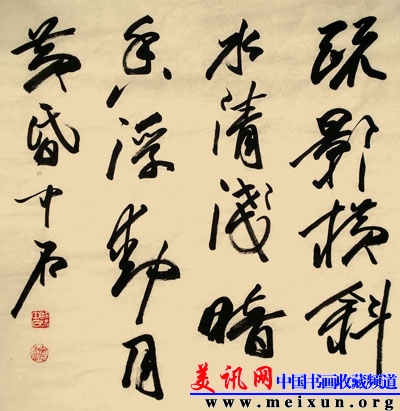 疏影横斜
水清浅暗
香浮動月
黄昏中石
美讯网 中国书画收藏频道
www.meixun.org